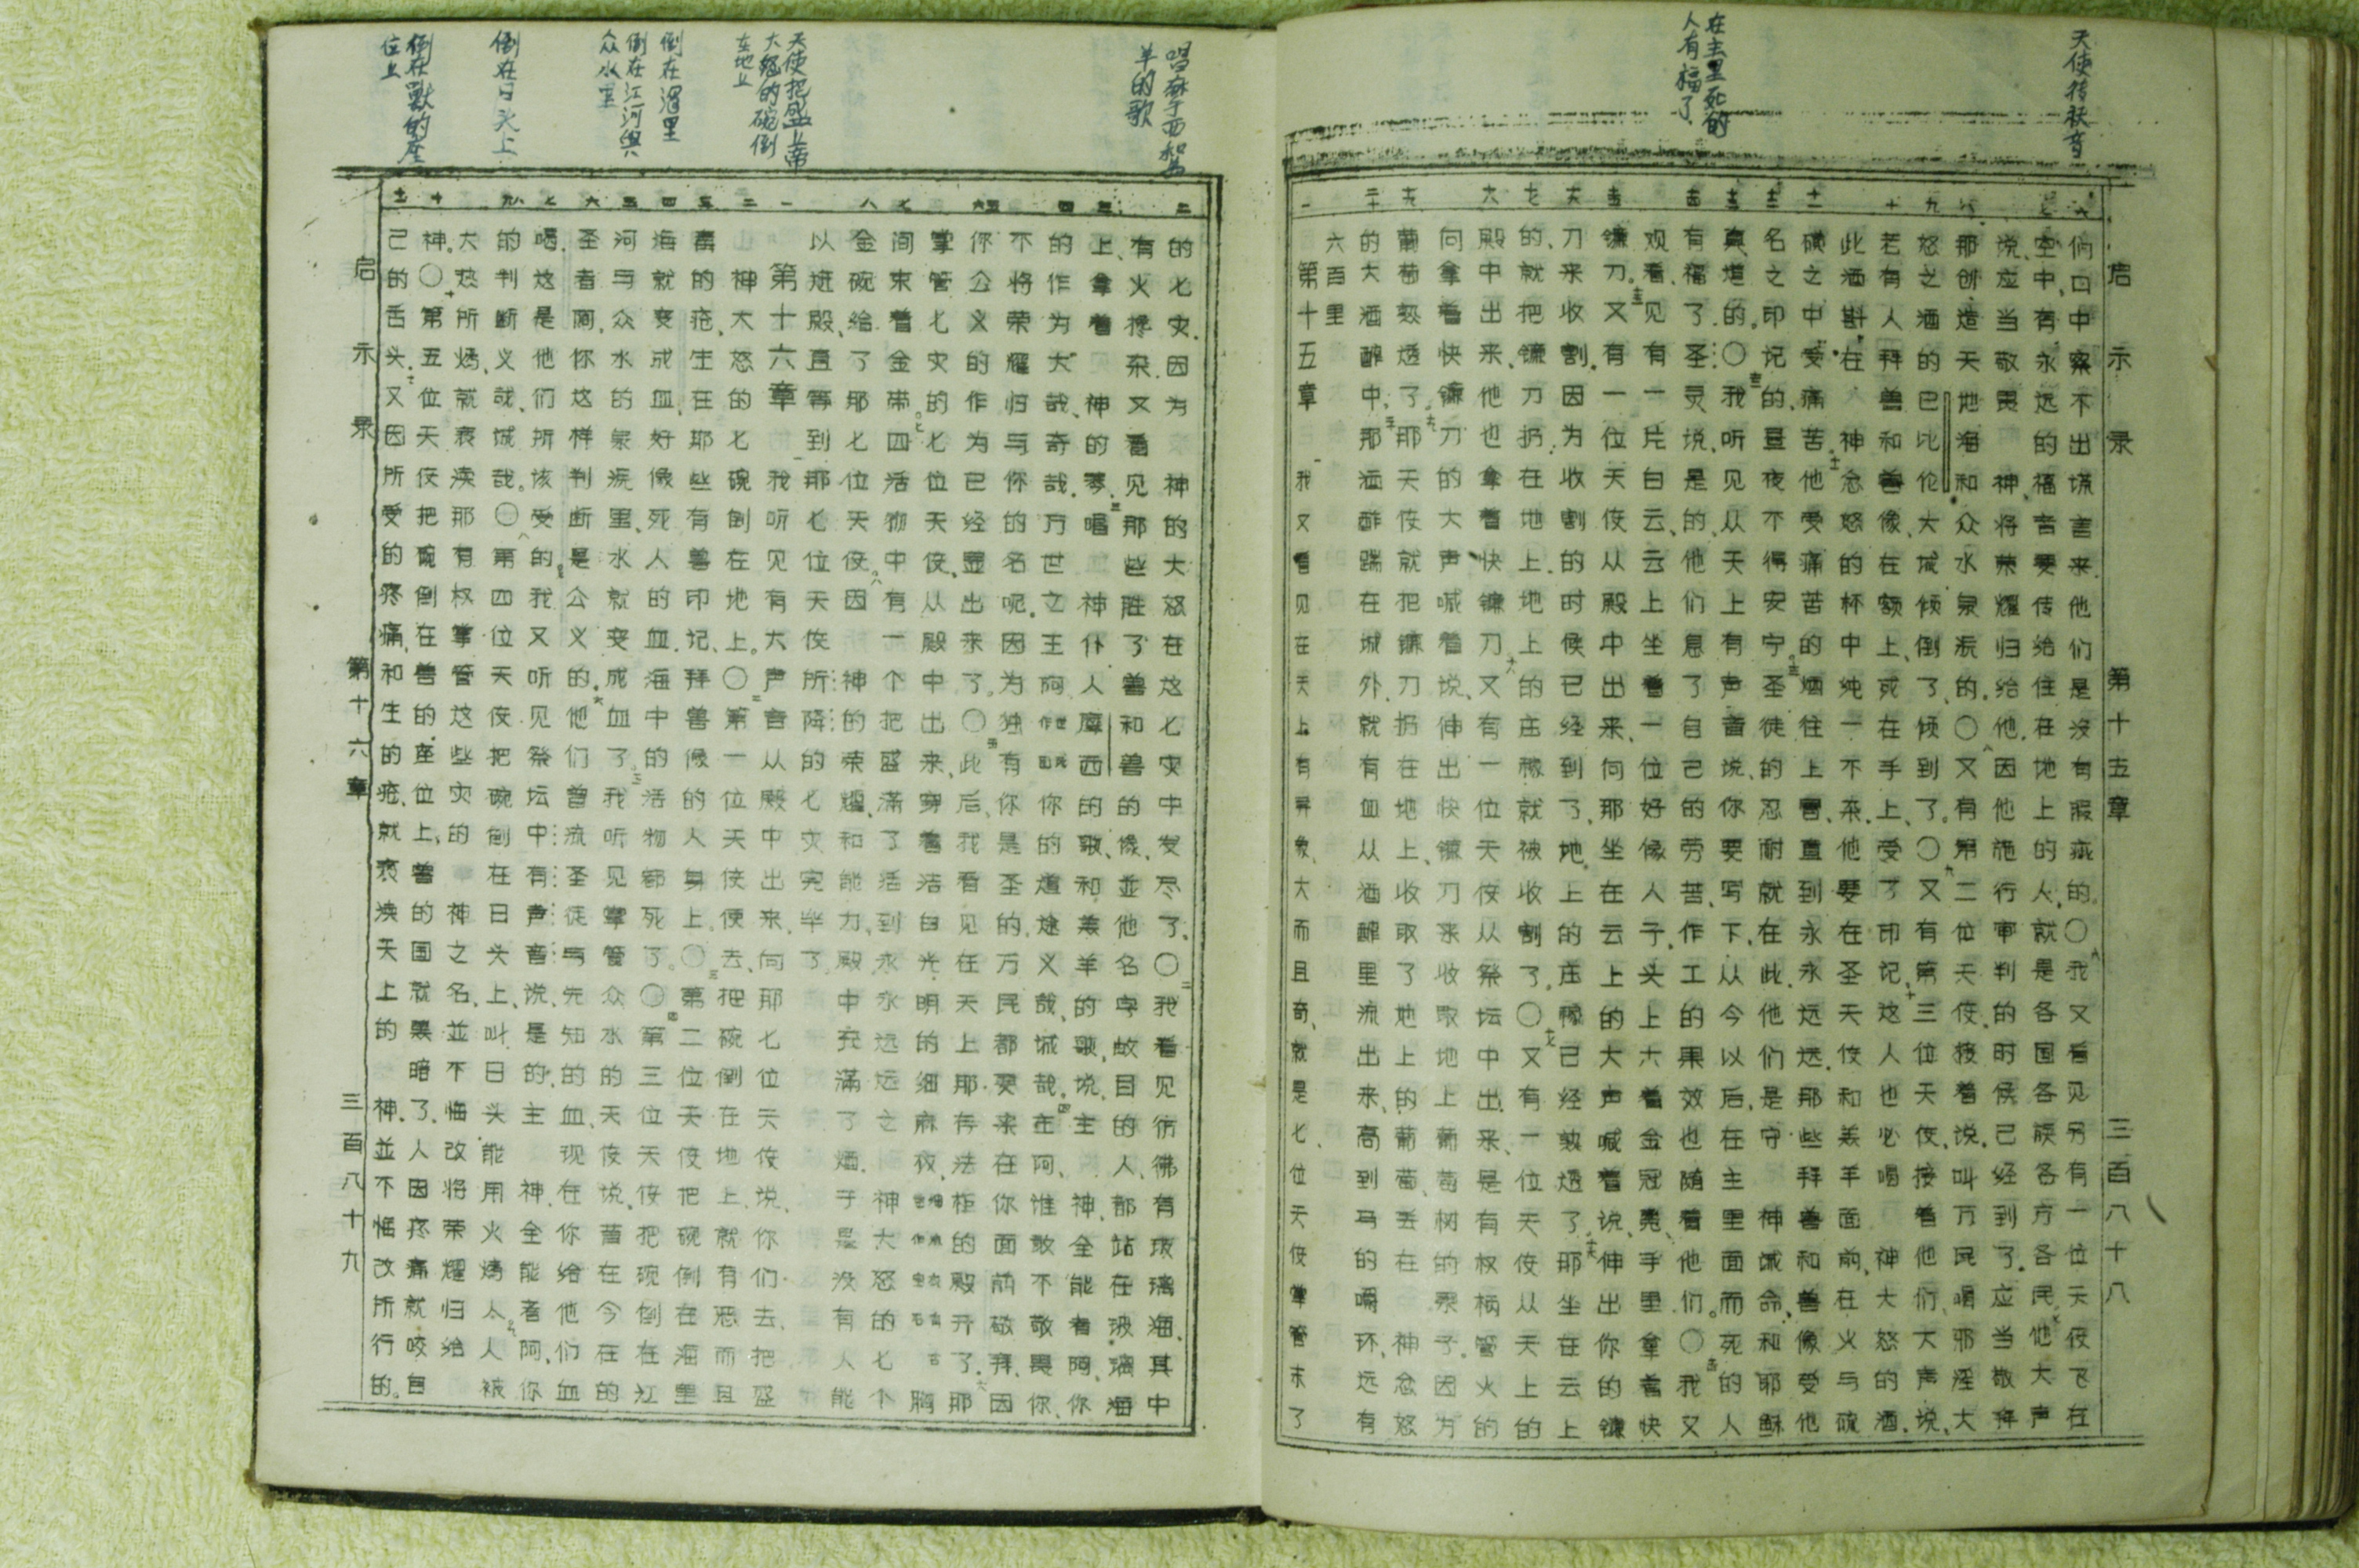 天使传扶音
在主里死的
人有福了
启示录 第十五章 三百八十八
们口中察不出谎言来.他们是没有瑕疵的.〇我又看见另有一位天使飞在
空中,有永远的福音要传给住在地上的人.就是各国各族各方各民.他大声
说,应当敬畏 神,将荣耀归给他.因他施行审判的时候已经到了.应当敬拜
那创造天地海和众水泉源的.〇又有第二位天使,接着说,叫万民喝邪淫大
怒之酒的巴比伦大城倾倒了,倾到了.〇又有第三位天使,接着他们,大声说,
若有人拜兽和兽像,在额上,或在手上,受了印记,这人也必喝 神大怒的酒.
此酒斟在 神忿怒的杯中纯一不杂.他要在圣天使和羔羊面前,在火与硫
磺之中受痛苦.他受痛苦的烟往上冒,直到永永远远.那些拜兽和兽像受他
名之印记的,昼夜不得安宁.圣徒的忍耐就在此.他们是守 神诫命,和耶稣
真道的.〇我听见从天上有声音说,你要写下,从今以后,在主里面而死的人
有福了.圣灵说,是的,他们息了自己的劳苦,作工的果效也随着他们。〇我又
观看,见有一片白云,云上坐着一位好像人子,头上大着金冠冕,手里拿着快
镰刀.又有一位天使从殿中出来,向那坐在云上的大声喊着说,伸出你的镰
刀来收割.因为收割的时候已经到了,地上的庄稼已经熟透了.那坐在云上
的,就把镰刀扔在地上.地上的庄稼就被收割了.〇又有一位天使从天上的
殿中出来,他也拿着快镰刀.又有一位天使从祭坛中出来,是有权柄管火的
向拿着快镰刀的大声喊着说,伸出快镰刀来收取地上葡萄树的果子.因为
葡萄熟透了.那天使就把镰刀扔在地上,收取了地上的葡萄,丢在 神忿怒
的大酒醡中.那酒醡踹在城外,就有血从酒醡里流出来,高到马的嚼环,远有
六百里
第十五章 我又看见在天上有异象,大而且奇,就是七位天使掌管末了
唱摩西和羔
羊的歌
天使把盛上帝
大怒的碗倒
在地上
倒在海里
倒在江河与
众水里
倒在日头上
倒在獸的座
位上
的七灾.因为 神的大怒在这七灾中发尽了.〇我看见彷彿有玻璃海,其中
有火搀杂.又看见那些胜了兽和兽的像,並他名字数目的人,都站在玻璃海
上,拿着 神的琴.唱 神仆人摩西的歌,和羔羊的歌,说,主 神全能者阿,你
的作为大哉,奇哉.万世之王阿,你的道途义哉,诚哉.主阿,谁敢不敬畏你,
不将荣耀归与你的名呢.因为独有你是圣的.万民都要来在你面前敬拜.因
你公义的作为已经显出来了.〇此后,我看见在天上那存法柜的殿开了.那
掌管七灾的七位天使,从殿中出来,穿着洁白光明的细麻衣,胸
间束着金带.四活物中有一个把盛满了活到永永远远之 神大怒的七个
金碗给了那七位天使.因 神的荣耀和能力,殿中充满了烟.于是没有人能
以进殿,直等到那七位天使所降的七灾完毕了
第十六章 我听见有大声音从殿中出来,向那七位天使说,你们去,把盛
神大怒的七碗倒在地上.〇第一位天使便去,把碗倒在地上,就有恶而且
毒的疮,生在那些有兽印记,拜兽像的人身上.〇第二位天使把碗倒在海里
海就变成血,好像死人的血.海中的活物都死了.〇第三位天使把碗倒在江
河与众水的泉源里,水就变成血了.我听见掌管众水的天使说,昔在今在的
圣者阿,你这样判断是公义的.他们曾流圣徒与先知的血,现在你给他们血
喝,这是他们所该受的.我又听见祭坛中有声音说,是的,主 神全能者阿,你
的判断义哉,诚哉.〇第四位天使把碗倒在日头上,叫日头能用火烤人.人被
大热所烤,就亵渎那有权掌管这些灾的 神之名,並不悔改将荣耀归给
神.〇第五位天使把碗倒在兽的座位上,兽的国就黑暗了.人因疼痛就咬自
己的舌头.又因所受的疼痛,和生的疮,就亵渎天上的 神.並不悔改所行的.
启示录 第十六章 三百八十九